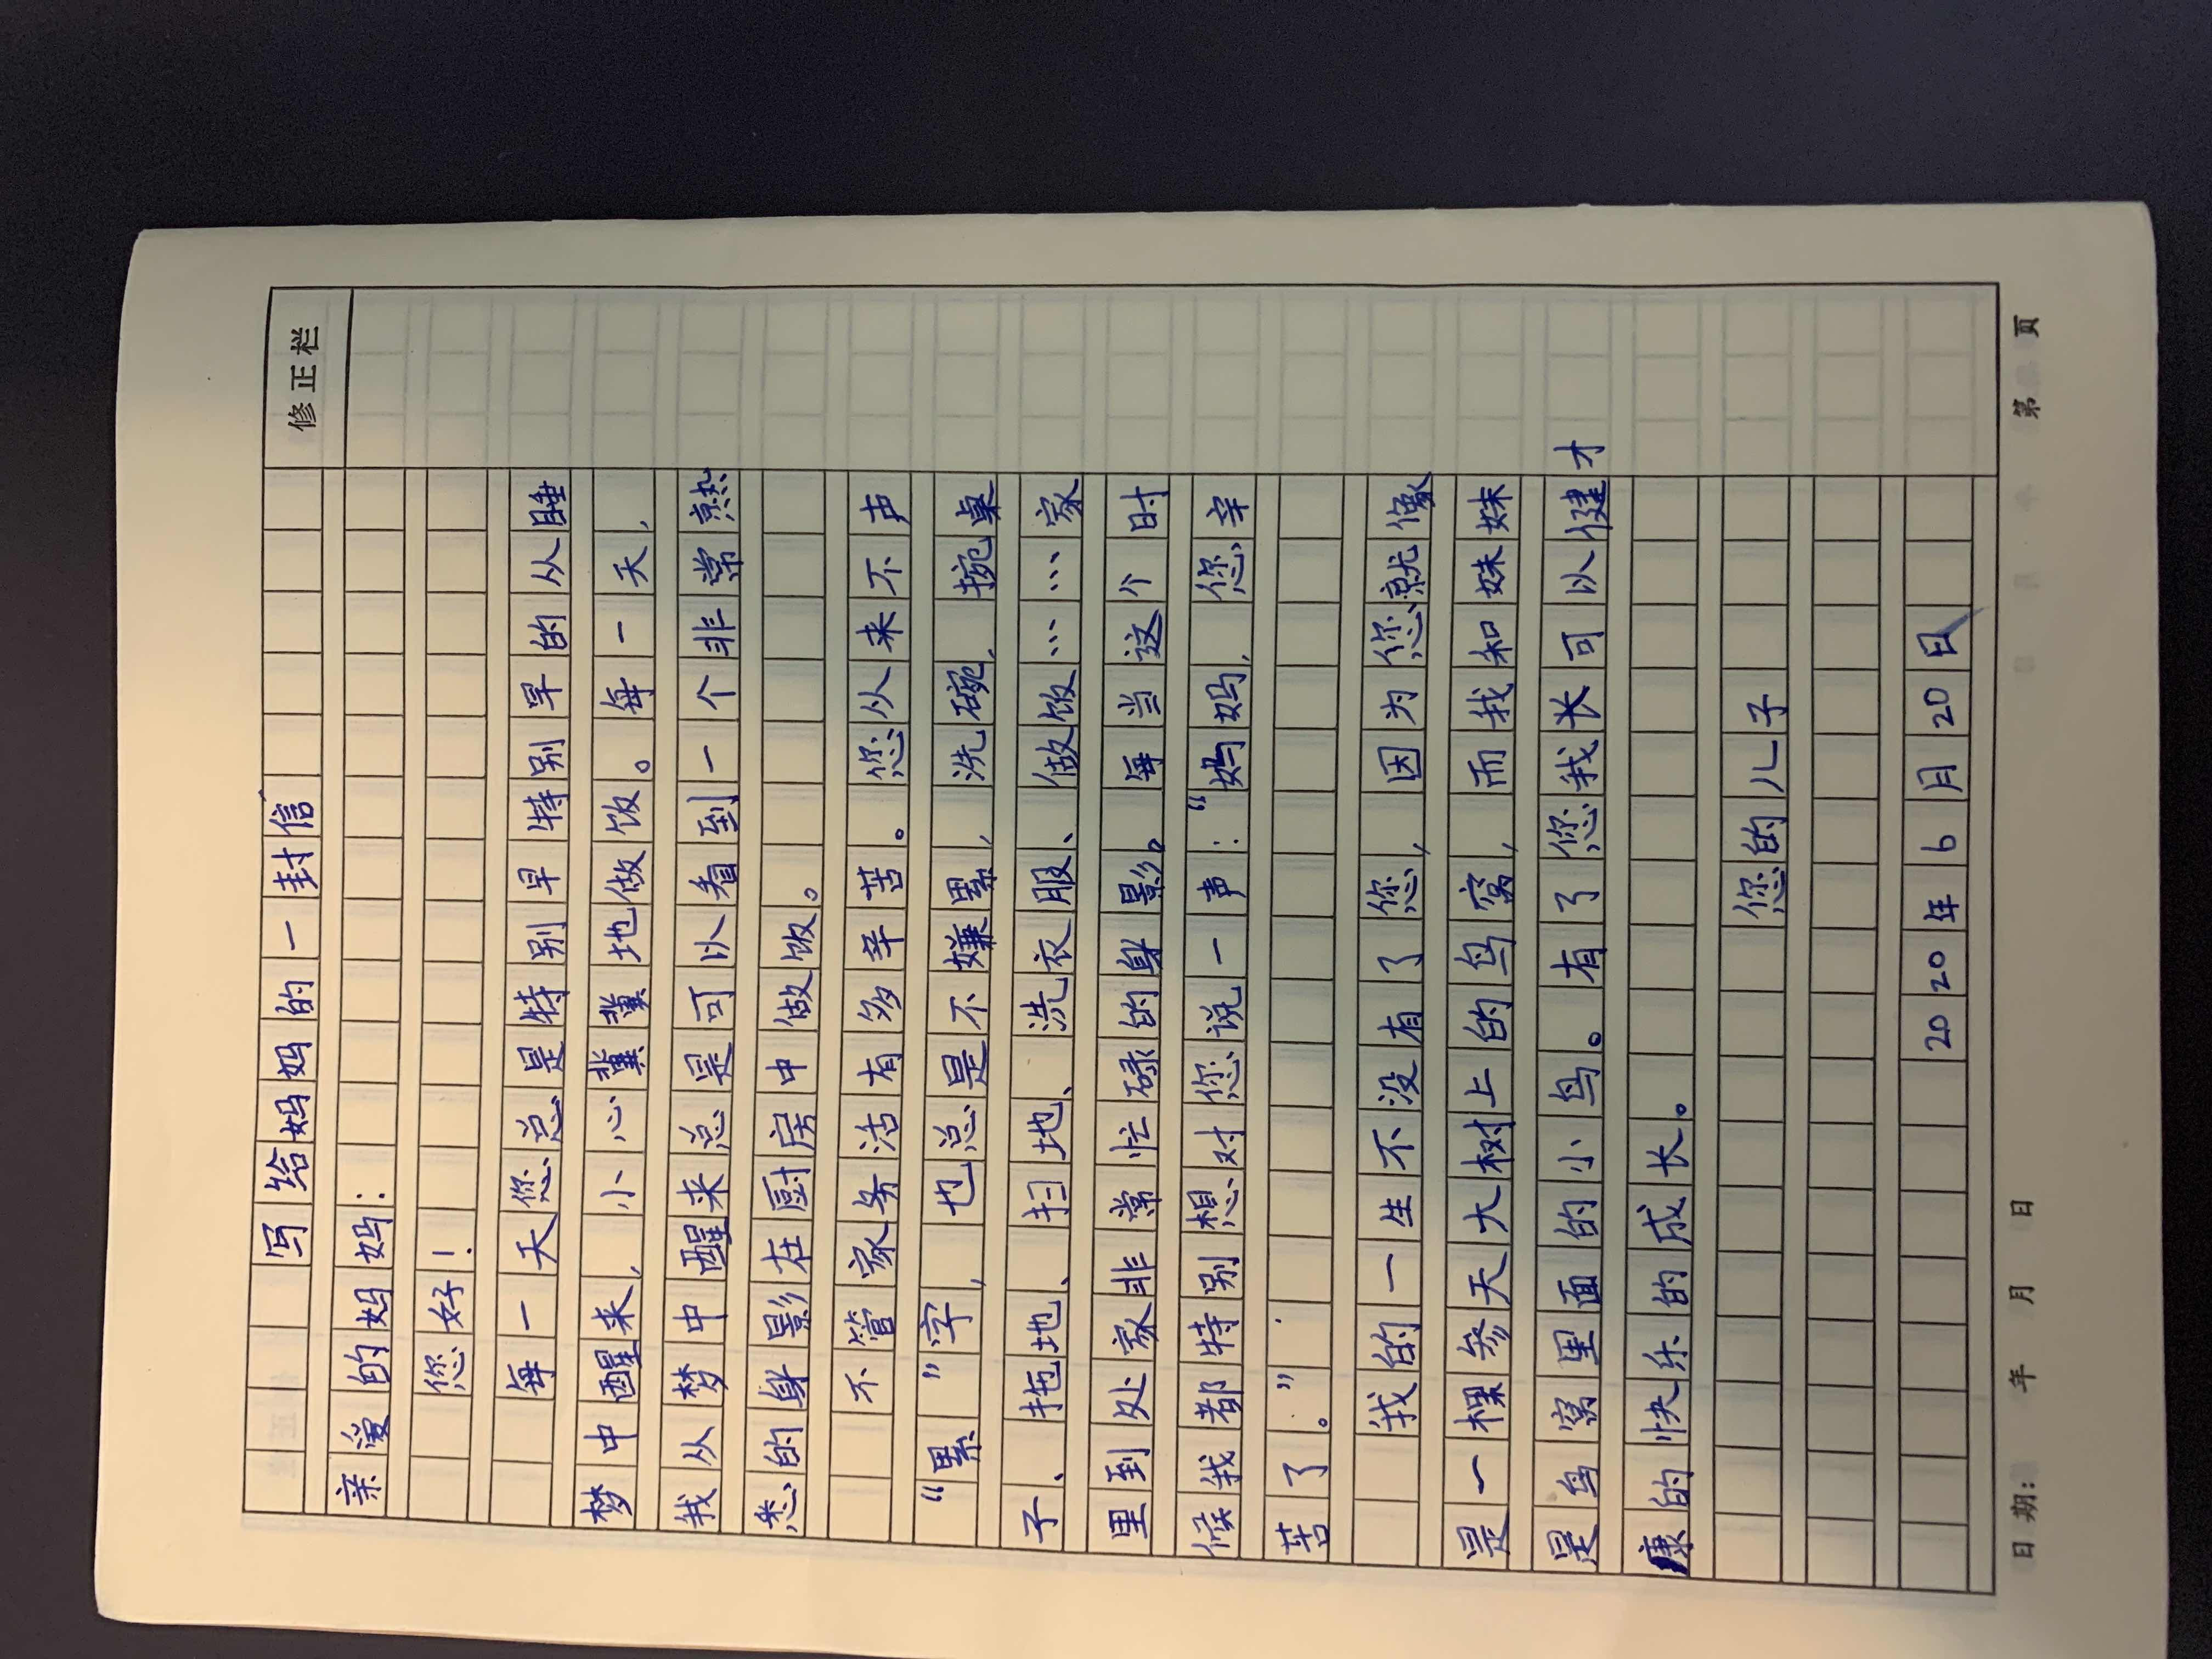 修正栏
写给妈妈的一封信
亲爱的妈妈：
您好！
每一天您总是特别早特别早的从睡
梦中醒来，小心冀冀地做饭。每一天，
我从梦中醒来总是可以看到一个非常熟
悉的身影在厨房中做饭。
不管家务活有多辛苦。您从来不声
“累”字，也总是不嫌累，洗碗，捥桌
子、拖地、扫地、洗衣服、做饭……家
里到处家非常忙碌的身影。每当这个时
候我都特别想对您说一声：“妈妈，您辛
苦了。”
我的一生不没有了您，因为您就像
是一棵参天大树上的鸟窝，而我和妹妹
是鸟窝里面的小鸟。有了您我长可以健才
康的快乐的成长。
您的儿子
2020年6月20日
日期： 年 月 日 第 页